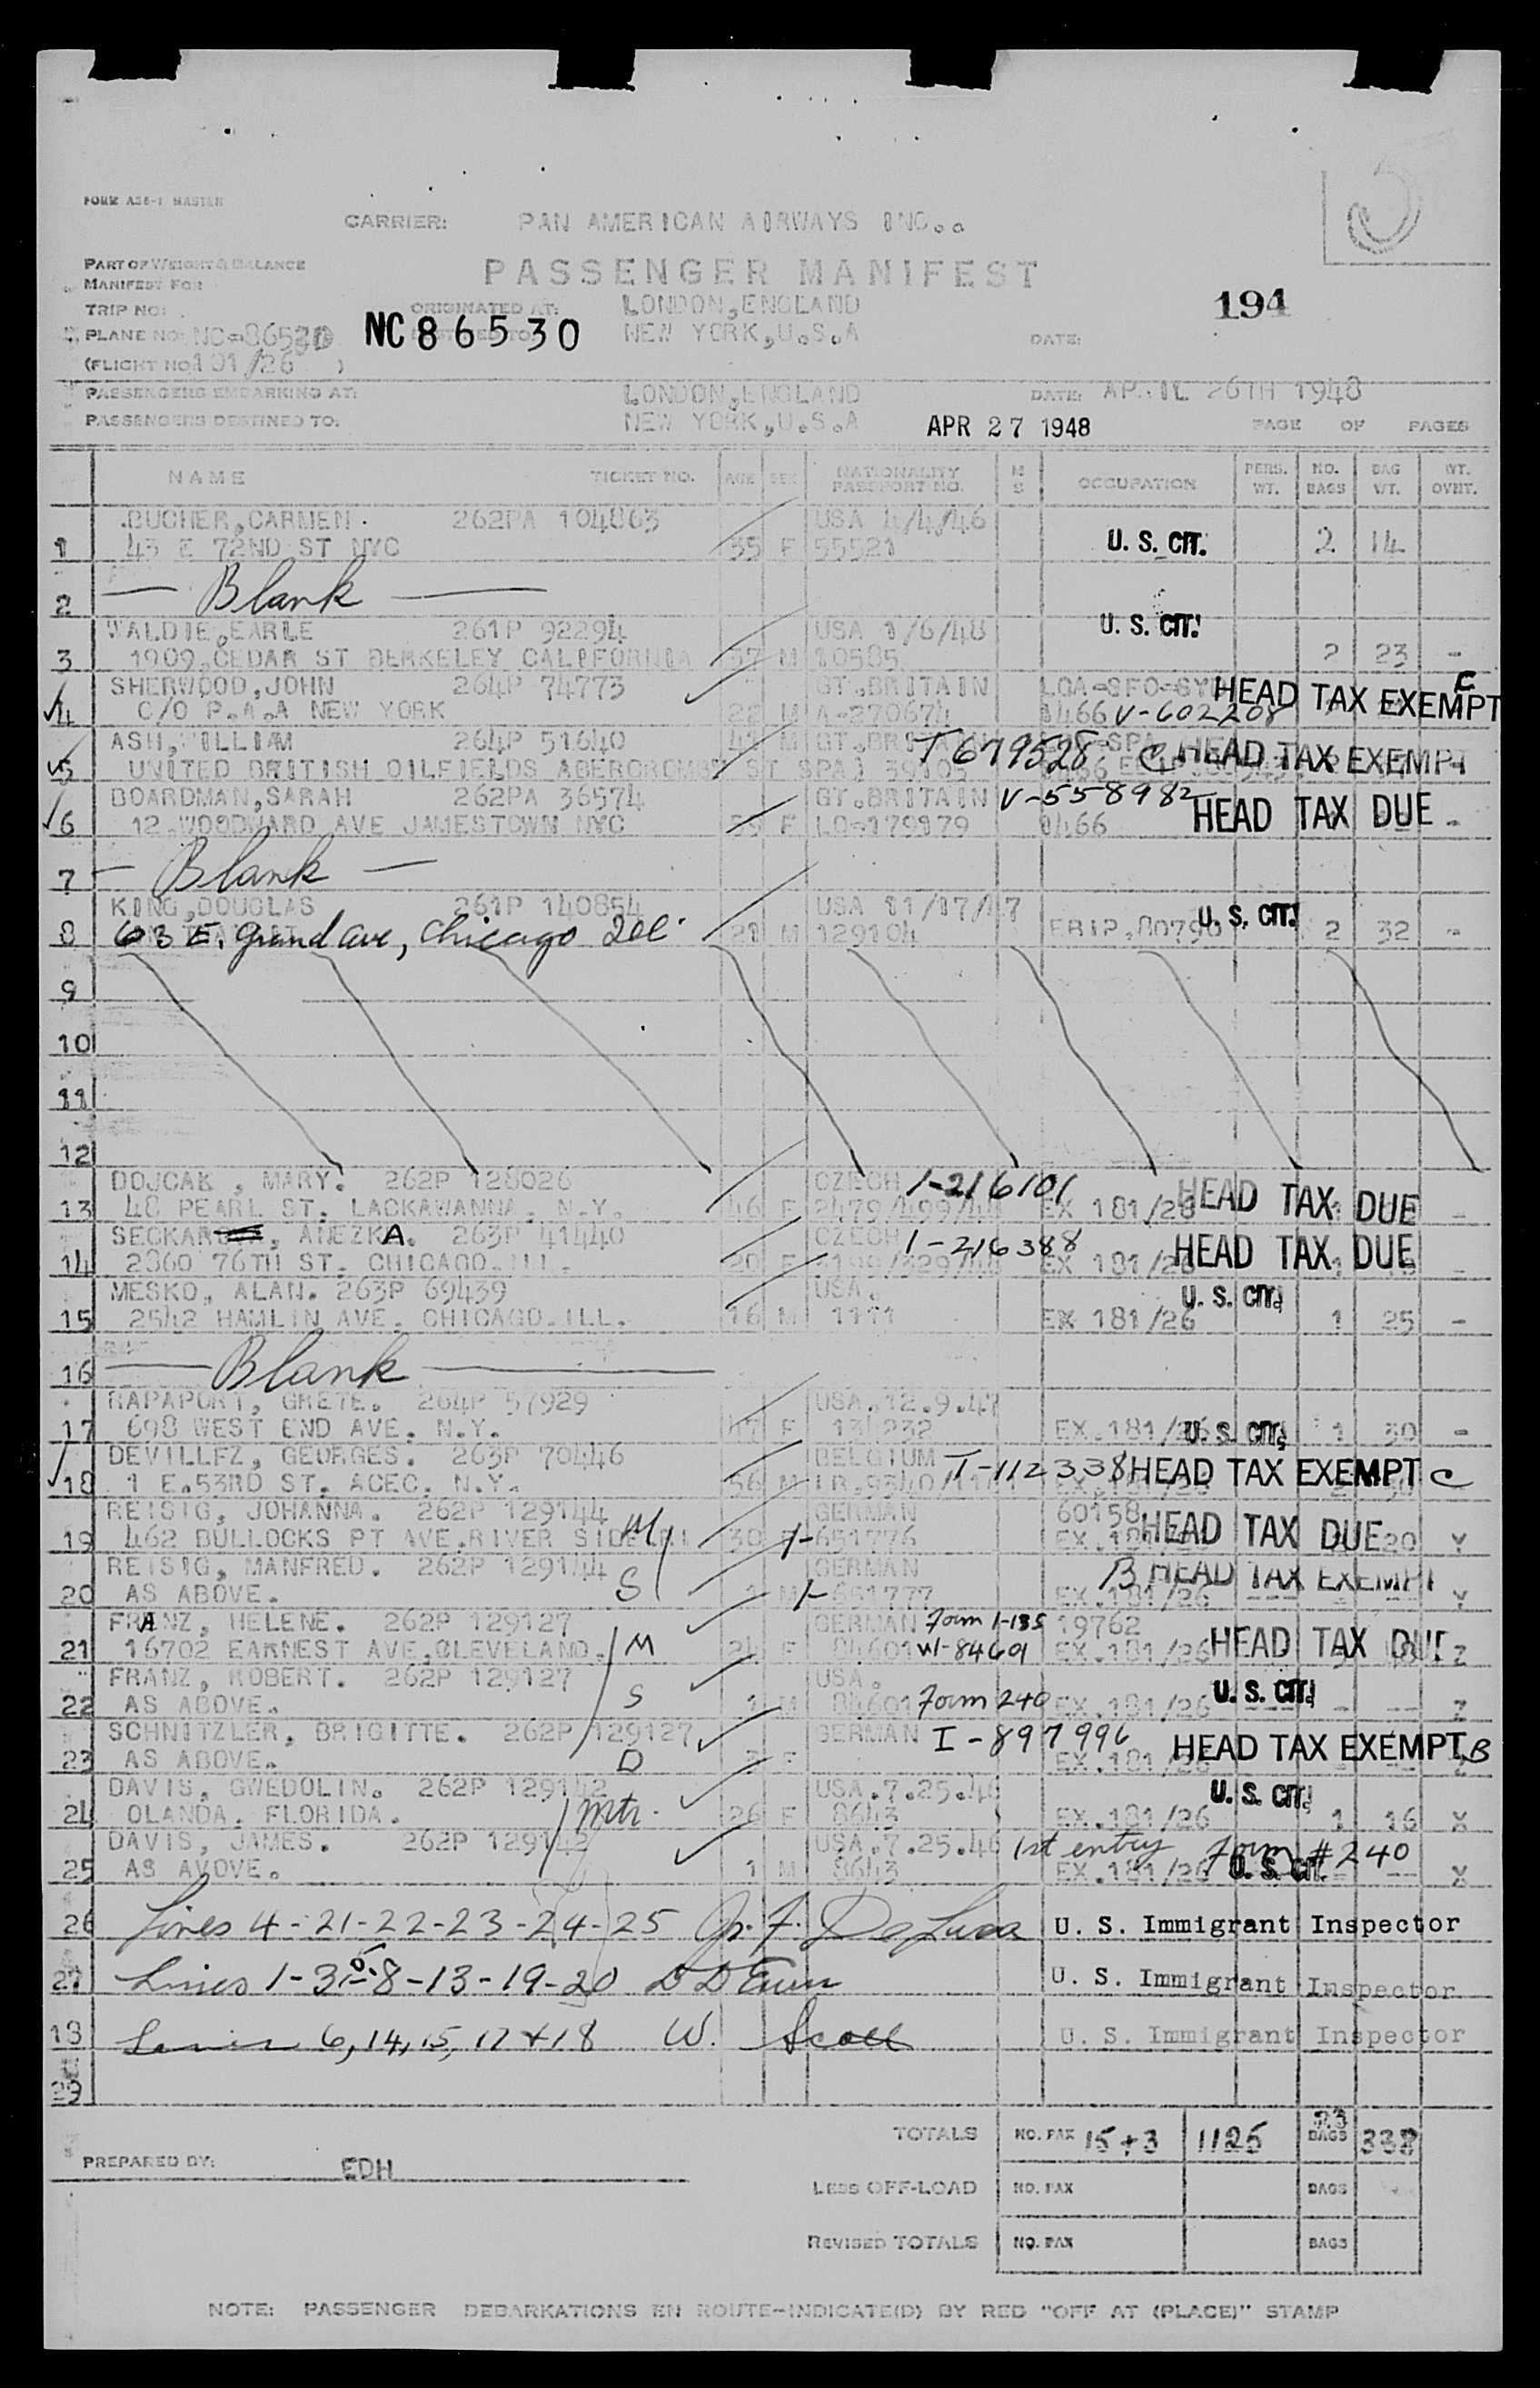 FORM AS6-1 MASTER
CARRIER: PAN AMERICAN AIRWAYS INC..
PART OF WEIGHT & BALANCE
MANIFEST FOR
PASSENGER MANIFEST
194
TRIP NO: ORIGINATED AT: LONDON, ENGLAND
PLANE NO: NC-86530 NC86530 NEW YORK, U.S.A DATE:
(FLIGHT NO 101/26 )
PASSENGERS EMBARKING AT: LONDON, ENGLAND DATE: APRIL 26TH 1948
PASSENGERS DESTINED TO: NEW YORK, U.S.A APR 27 1948 PAGE OF PAGES
NAME TICKET NO. AGE SEX NATIONALITY PASSPORT NO. M S OCCUPATION PERS. WT. NO. BAGS BAG WT. WT. OVHT.
BUCHER, CARMEN. 262PA 104863 USA 4/4/46
1 43 E 72ND ST NYC 55 F 55521 U. S. CIT. 2 14
2 — Blank —
WALDIE, EARLE 261P 92294 USA 1/6/48 U. S. CIT.
3 1909, CEDAR ST BERKELEY CALIFORNIA 57 M 10585 2 23 -
SHERWOOD, JOHN 264P 74773 GT. BRITAIN LGA-SFO-SY HEAD TAX EXEMPT C
4 C/O P.A.A NEW YORK 22 M A-27067 1466 V-602208
ASH, WILLIAM 264P 51640 41 M GT. BRITAIN T 679528 C HEAD TAX EXEMPT
5 UNITED BRITISH OILFIELDS ABERCROMBY ST SPAI 39105
BOARDMAN, SARAH 262PA 36574 GT. BRITAIN V-558982
6 12. WOODWARD AVE JAMESTOWN NYC 59 F LO-179179 1466 HEAD TAX DUE -
7 — Blank —
KING, DOUGLAS 261P 140854 USA 11/17/47 U. S. CIT.
8 63 E. Grand ave, Chicago Ill. 21 M 129104 EBIP.80790 2 32 -
9
10
11
12
DOJCAK, MARY. 262P 128026 CZECH 1-216101
13 48 PEARL ST. LACKAWANNA. N.Y. 46 F 2479/499/48 EX 181/26 HEAD TAX DUE -
SECKAR, ANEZKA. 263P 41440 CZECH 1-216388
14 2360 76TH ST. CHICAGO. ILL. 20 F EX 181/26 HEAD TAX DUE -
MESKO, ALAN. 263P 69439 USA. U. S. CIT.
15 2542 HAMLIN AVE. CHICAGO. ILL. 16 M 1111 EX 181/26 1 25 -
16 — Blank —
RAPAPORT, GRETE. 264P 57929 USA. 12.9.47
17 698 WEST END AVE. N.Y. 47 F 131232 EX.181/26 U. S. CIT. 1 30 -
DEVILLEZ, GEORGES. 263P 70446 BELGIUM T-112338 HEAD TAX EXEMPT C
18 1 E.53RD ST. ACEC. N.Y. 56 M
REISIG, JOHANNA. 262P 129144 M GERMAN 60158
19 462 BULLOCKS PT AVE.RIVER SIDE RI 30 F 1-651776 EX.181/26 HEAD TAX DUE 20 Y
REISIG, MANFRED. 262P 129144 S GERMAN B HEAD TAX EXEMPT
20 AS ABOVE. 1 M 1-651777 EX.181/26 Y
FRANZ, HELENE. 262P 129127 GERMAN Form 1-135 19762
21 16702 EARNEST AVE, CLEVELAND. M 24 F 84601 WI-84601 EX.181/26 HEAD TAX DUE Z
FRANZ, ROBERT. 262P 129127 S USA.
22 AS ABOVE. 1 M 84601 Form 240 EX.181/26 U. S. CIT. - -- Z
SCHNITZLER, BRIGITTE. 262P 129127 GERMAN I-897996
23 AS ABOVE. D 3 F EX.181/26 HEAD TAX EXEMPT B Z
DAVIS, GWEDOLIN. 262P 129142 USA.7.25.46 U. S. CIT.
24 OLANDA. FLORIDA. Mtr. 26 F 8643 EX.181/26 1 16 X
DAVIS, JAMES. 262P 129142 USA.7.25.46 1st entry Form #240
25 AS AVOVE. 1 M 8643 EX.181/26 U. S. CIT. - -- X
26 Lines 4-21-22-23-24-25 U. S. Immigrant Inspector
27 Lines 1-3-5-8-13-19-20 U. S. Immigrant Inspector
18 Lines 6, 14, 15, 17 + 18 W. Scott U. S. Immigrant Inspector
29
TOTALS NO. PAX 15+3 1125 23 BAGS 338
PREPARED BY: EDH
LESS OFF-LOAD NO. PAX BAGS
REVISED TOTALS NO. PAX BAGS
NOTE: PASSENGER DEBARKATIONS EN ROUTE-INDICATE(D) BY RED "OFF AT (PLACE)" STAMP